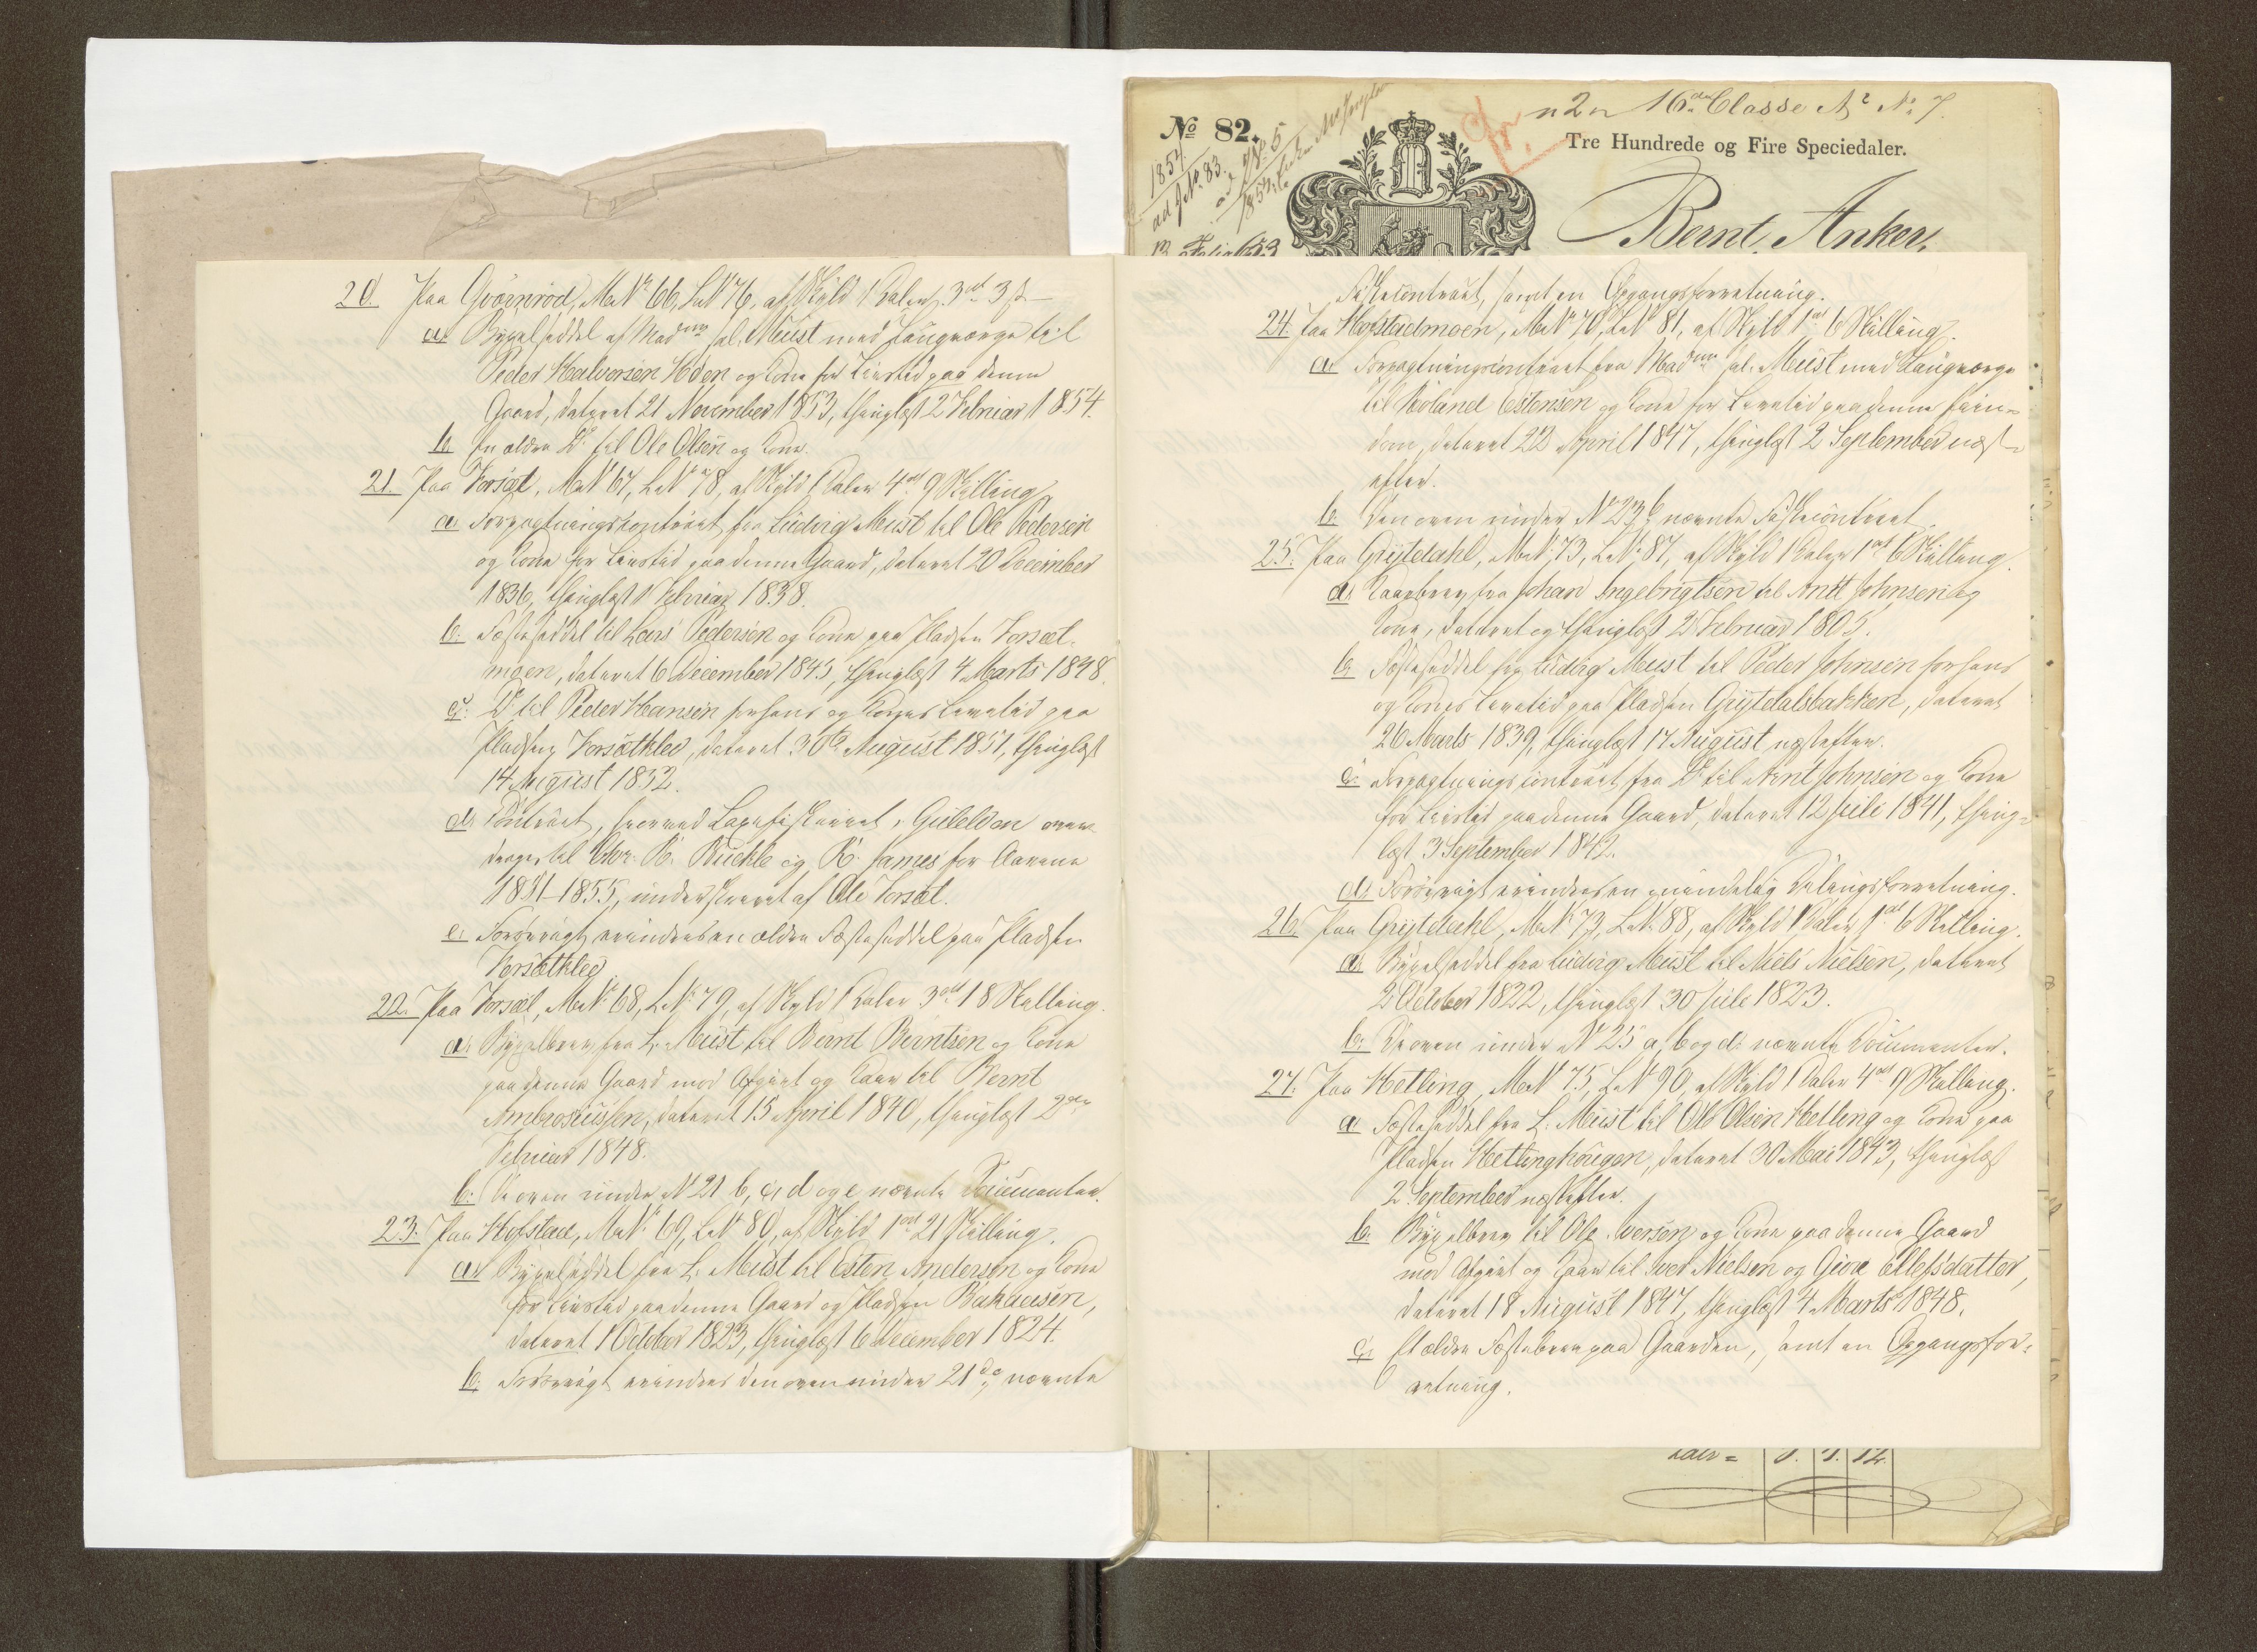 20. Paa Qværnrød, M.N. 66, L.N. 76, af Skyld 1 Daler 3 ort 3 ß
a. Bygselseddel af Mad. sal. Must med Laugværge til
Peder Halvorsen Moen og Kone for Livstid paa denne
Gaard, dateret 21 November 1853, thinglæst 2 Februar 1854.
b. En ældre Do til Ole Olsen og Kone.
21. Paa Vorsæt, M.N. 67, L.N. 78, af Skyld 1 Daler 4 ort 9 Skilling,
a. Forpagtningskontract fra Ludvig Must til Ole Pedersen
og Kone for Livstid paa denne Gaard, dateret 20 December
1836, thinglæst 1 Februar 1838.
b. Fæsteseddel til Lars Pedersen og Kone paa Pladsen Vorsæt-
moen, dateret 6 December 1845, thinglæst 4 Marts 1848.
c. Do til Peder Hansen for hans og Kones Levetid paa
Pladsen Vorsætkled, dateret 30 August 1851, thinglæst
14 August 1852.
d. Contract, hvorved Laxefiskeriet i Guldelven over-
drages til R. Buckle og R. James for Aarene
1851-1855, underskrevet af Ole Vorsæt.
e. Forøvrigt erindres en ældre Fæsteseddel paa Pladsen
Vorsætkled.
22. Paa Vorsæt, M.N. 68, L.N. 79, af Skyld 1 Daler 3 ort 18 Skilling.
a. Bygselbrev fra L. Must til Bernt Berntsen og Kone
paa denne Gaard mod Afgivt og Kaar til Bernt
Ambrosiussen, dateret 15 April 1840, thinglæst 2den
Februar 1848.
b. De oven under N. 21 b, c, d og e nævnte Documenter.
23. Paa Hofstad, M.N. 69, L.N. 80, af Skyld 1 ort 21 Skilling.
a. Bygselseddel fra L. Must til Esten Andersen og Kone
for Livstid paa denne Gaard og Pladsen
dateret 1 October 1823, thinglæst 6 December 1824.
b. Forøvrigt erindres den oven under 21 nævnte
No 82.
n 2 n 16de Classe No 7.
Tre Hundrede og Fire Speciedaler.
Bernt Anker,
1854
Fiskecontract, samt en Opgangsforretning.
24. Paa Hofstadmoen, M.N. 70, L.N. 81, af Skyld 1 ort 6 Skilling.
a. Forpagtningscontract fra Mad. sal. Must med Laugværge
til Roland Estensen og Kone for Levetid paa denne Eien-
dom, dateret 22 April 1847, thinglæst 2 September næst-
efter.
b. Den oven under N 23 b nævnte Fiskecontract.
25. Paa Grytdahl, M.N. 73, L.N. 87, af Skyld 1 Daler 1 ort 6 Skilling.
a. Kaarbrev fra Johan Ingebrigtsen til Arnt Johnsen og
Kone, dateret og thinglæst 2 Februar 1805.
b. Fæsteseddel fra Ludvig Must til Peder Johnsen for hans
og Kones Levetid paa Pladsen Grytdalsbakken, dateret
26 Marts 1839, thinglæst 17 August næstefter.
c. Forpagtningscontract fra Do til Arnt Johnsen og Kone
for Livstid paa denne Gaard, dateret 12 Juli 1841, thing-
læst 3 September 1842.
d. Forøvrigt erindres en mindelig Delingsforretning.
26. Paa Grytdahl, M.N. 73, L.N. 88, af Skyld 1 Daler 1 ort 6 Skilling.
a. Bygselseddel fra Ludvig Must til Niels Nielsen, dateret
2 October 1822, thinglæst 30 Juli 1823.
b. De oven under N 25 a, b og d. nævnte Documenter.
27. Paa Hetling, M.N. 75, L.N. 90, af Skyld 1 Daler 4 ort 9 Skilling.
a. Fæsteseddel fra L. Must til Ole Olsen Hetling og Kone paa
Pladsen Hetlinghougen, dateret 30 Mai 1843, thinglæst
2 September næstefter.
b. Bygselbrev til Ole Iversen og Kone paa denne Gaard
mod Afgivt og Kaar til Iver Nielsen og Giøe Ellefsdatter,
dateret 18 August 1847, thinglæst 4 Marts 1848.
c. Et ældre Fæstebrev paa Gaarden, samt en Opgangsfor-
retning.